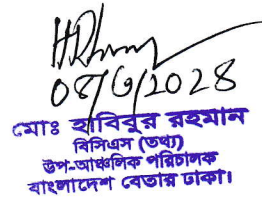 08/6/2028
মোঃ হাবিবুর রহমান
বিসিএস (তথ্য)
উপ-আঞ্চলিক পরিচালক
বাংলাদেশ বেতার ঢাকা।